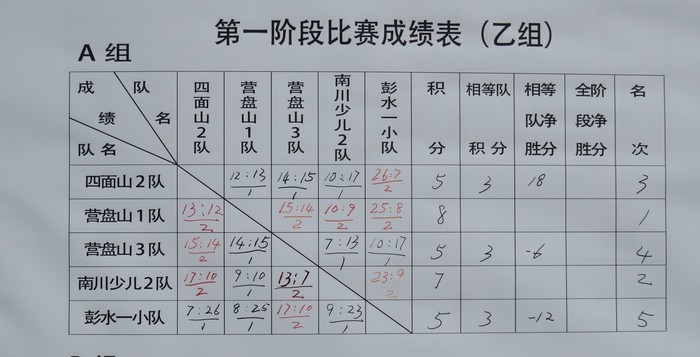 第一阶段比赛成绩表（乙组）
A 组
成 绩 队 名 队名 四面山2队 营盘山1队 营盘山3队 南川少儿2队 彭水一小队 积分 相等队积分 相等队净胜分 全阶段净胜分 名次
四面山2队 12:13 1 14:15 1 10:17 1 26:7 2 5 3 18 3
营盘山1队 13:12 2 15:14 2 10:9 2 25:8 2 8 1
营盘山3队 15:14 2 14:15 1 7:13 1 10:17 1 5 3 -6 4
南川少儿2队 17:10 2 9:10 1 13:7 2 23:9 2 7 2
彭水一小队 7:26 1 8:25 1 17:10 2 9:23 1 5 3 -12 5